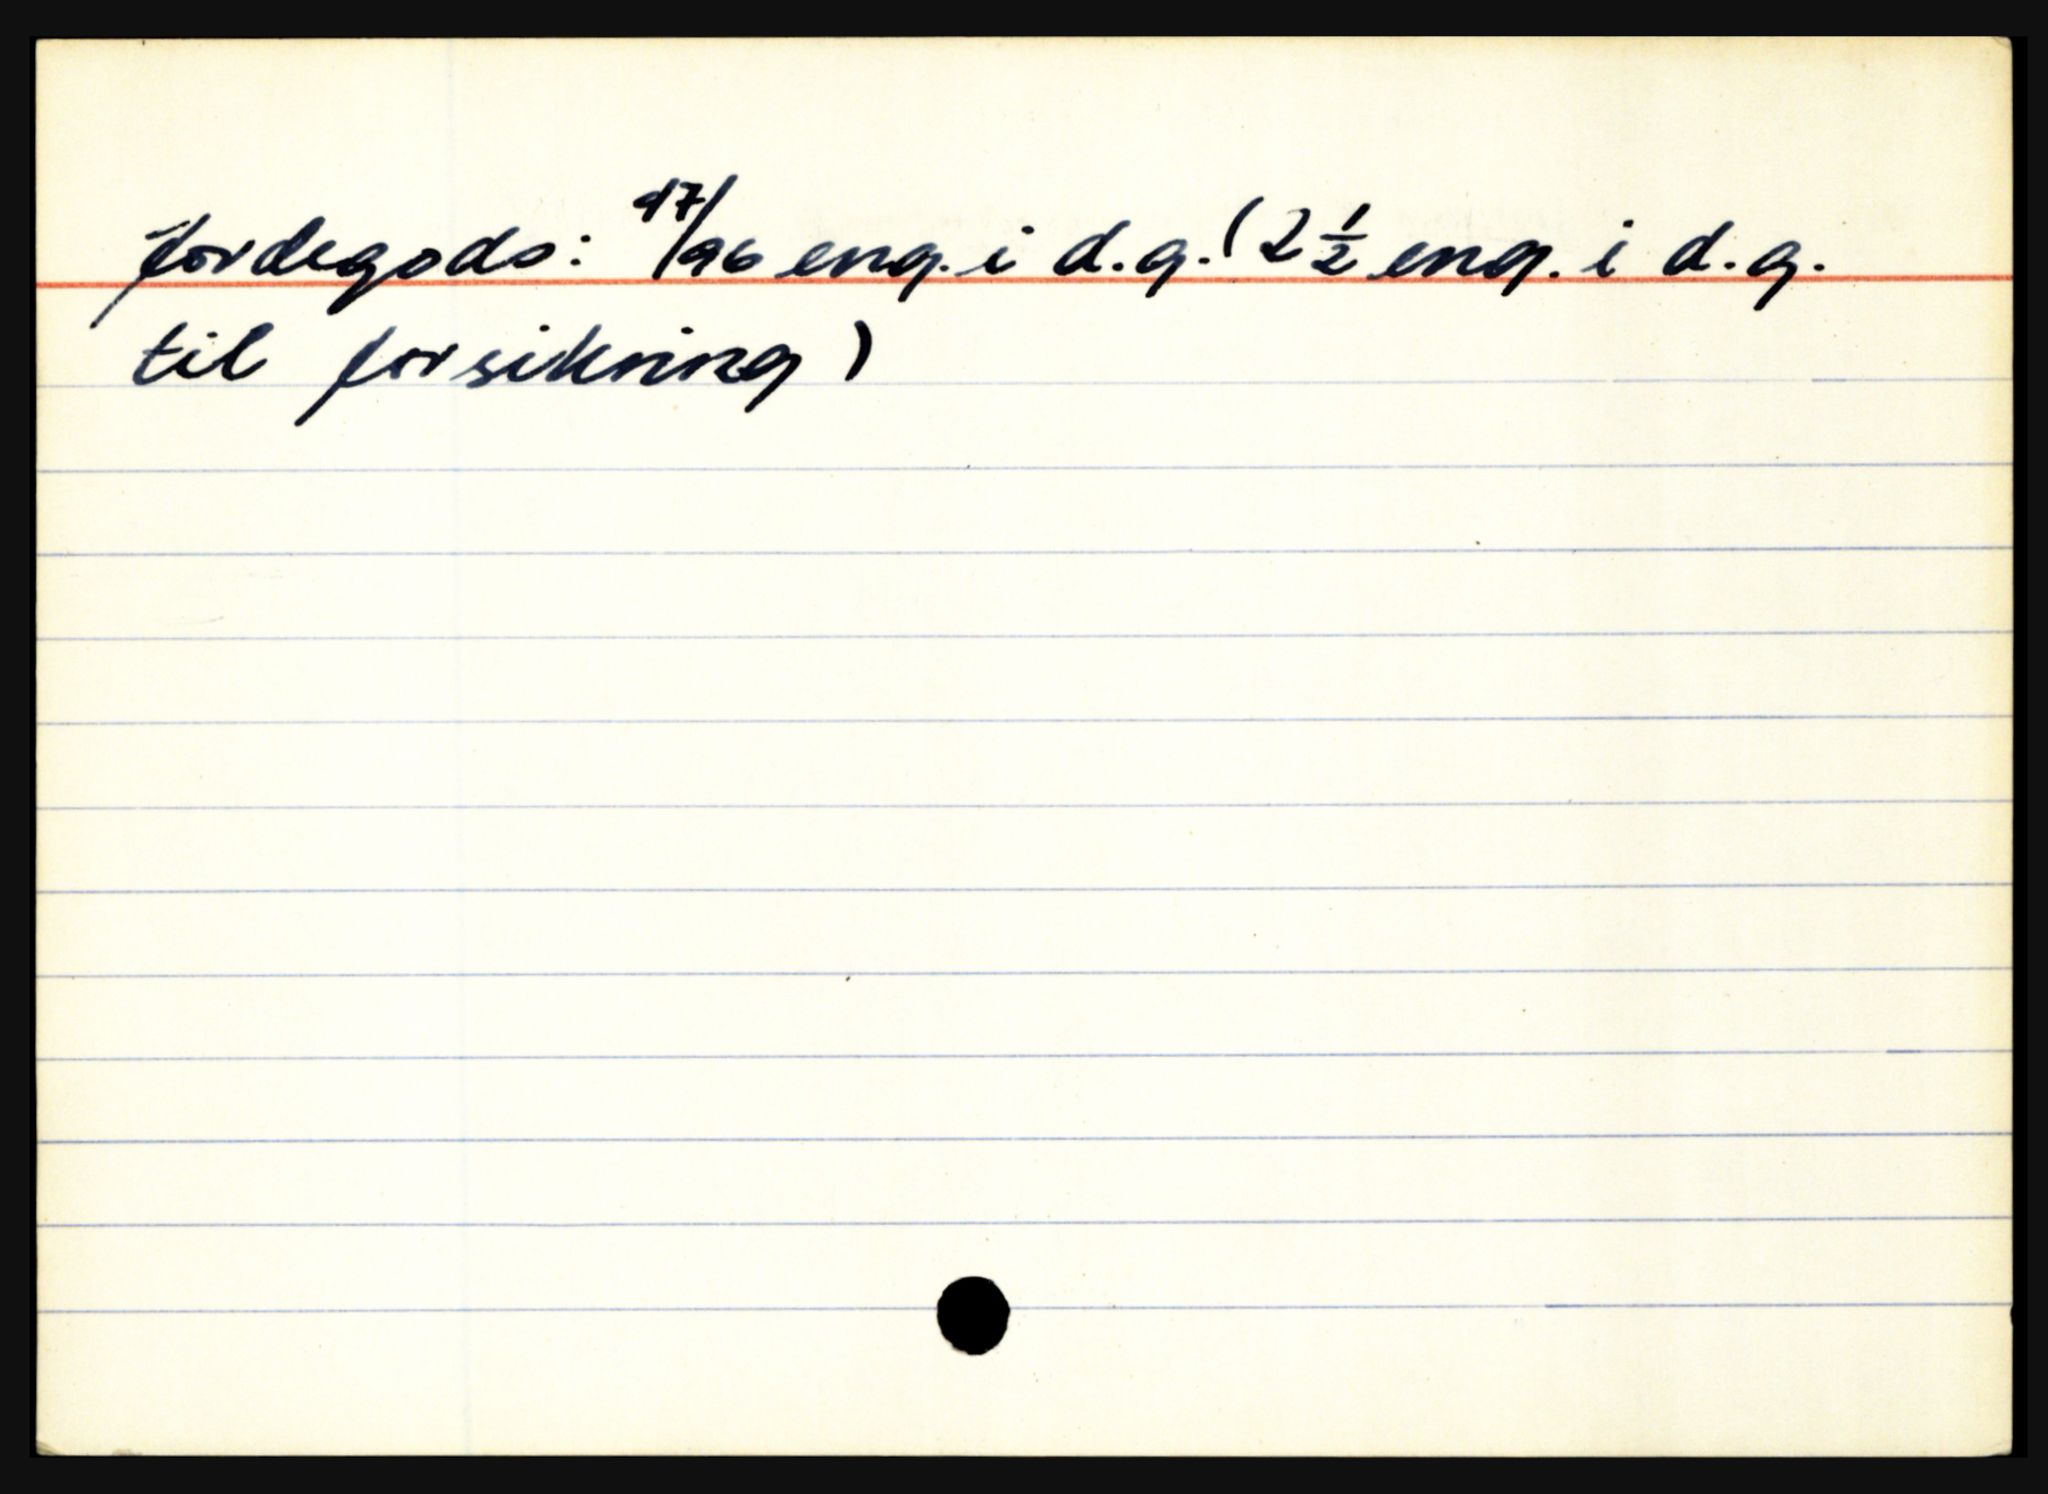 Jordegods: 17/96 eng. i d.g. (2 1/2 eng. i d.g.
til forsikring)